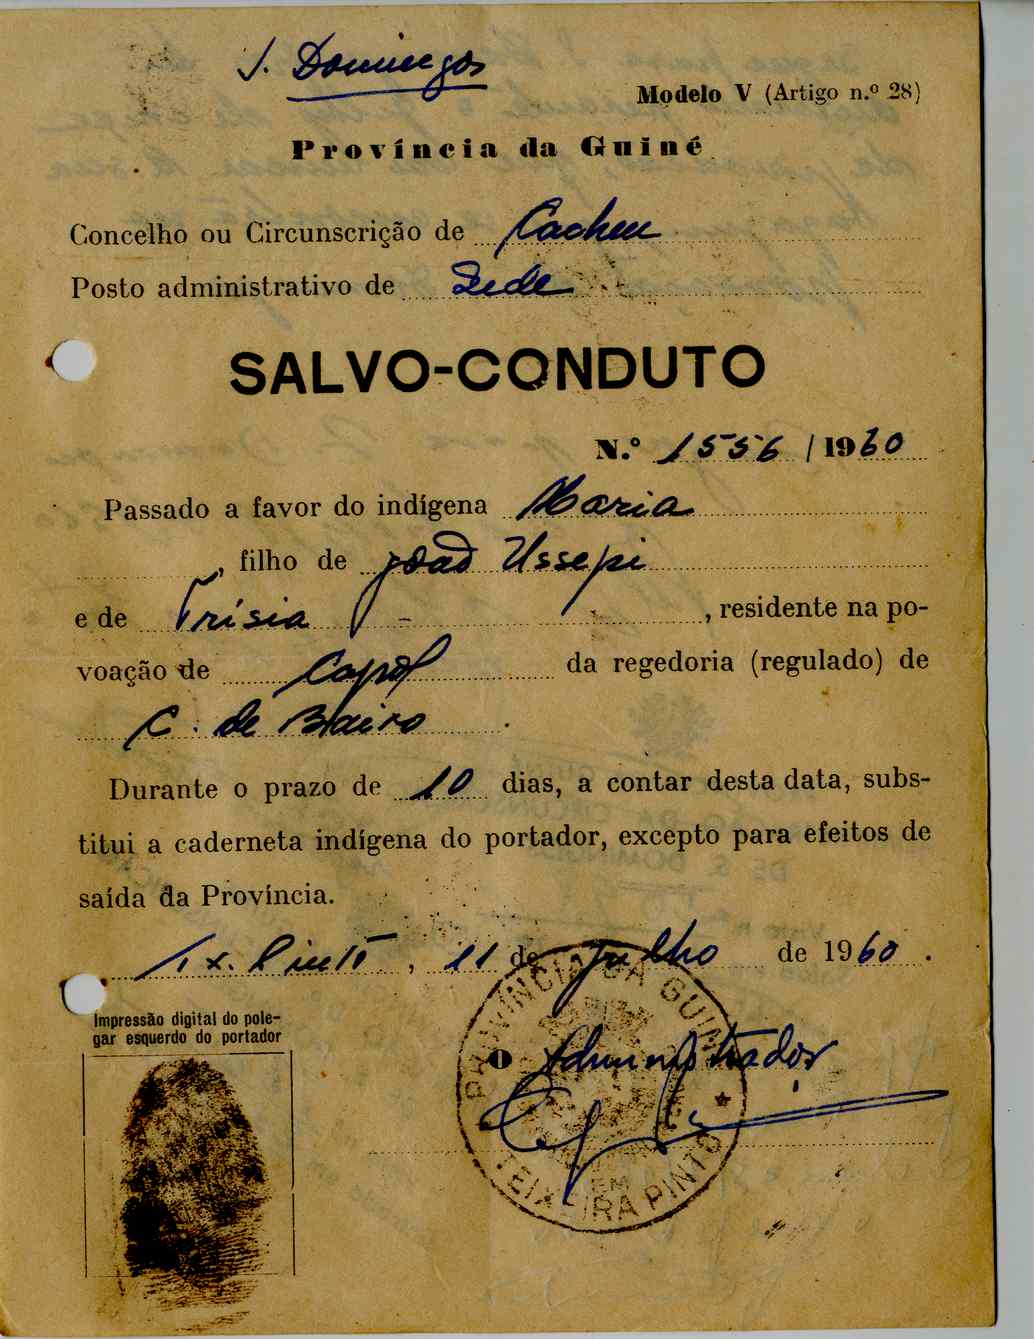 S. Domingos
Modelo V (Artigo n.º 28)
Província da Guiné
Concelho ou Circunscrição de Cacheu
Posto administrativo de Sede
SALVO-CONDUTO
N.º 1556 / 1960
Passado a favor do indígena Maria
, filho de João Ussepi
e de Trísia - , residente na po-
voação de Capol da regedoria (regulado) de
C. de Bairo .
Durante o prazo de 10 dias, a contar desta data, subs-
titui a caderneta indígena do portador, excepto para efeitos de
saída da Província.
Tx. Pinto, 11 de Julho de 1960.
Impressão digital do pole-
gar esquerdo do portador
O Administrador
PROVÍNCIA DA GUINÉ
EM
TEIXEIRA PINTO